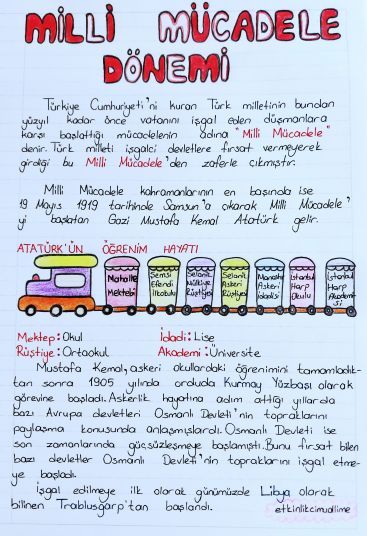 MİLLİ MÜCADELE
DÖNEMİ
Türkiye Cumhuriyeti'ni kuran Türk milletinin bundan
yüzyıl kadar önce vatanını işgal eden düşmanlara
karşı başlattığı mücadelenin adına "Milli Mücadele"
denir. Türk milleti işgalci devletlere fırsat vermeyerek
girdiği bu Milli Mücadele'den zaferle çıkmıştır.
Milli Mücadele kahramanlarının en başında ise
19 Mayıs 1919 tarihinde Samsun'a çıkarak Milli Mücadele'
yi başlatan Gazi Mustafa Kemal Atatürk gelir.
ATATÜRK'ÜN ÖĞRENİM HAYATI
Mahalle
Mektebi
Şemsi
Efendi
İlkokulu
Selanik
Mülkiye
Rüştiyesi
Selanik
Askeri
Rüştiye
Manastır
Askeri
İdadisi
İstanbul
Harp
Okulu
İstanbul
Harp
Akademi-
si
Mektep: Okul İdadi: Lise
Rüştiye: Ortaokul Akademi: Üniversite
Mustafa Kemal, askeri okullardaki öğrenimini tamamladık-
tan sonra 1905 yılında orduda Kurmay Yüzbaşı olarak
görevine başladı. Askerlik hayatına adım attığı yıllarda
bazı Avrupa devletleri Osmanlı Devleti'nin topraklarını
paylaşma konusunda anlaşmışlardı. Osmanlı Devleti ise
son zamanlarında güçsüzleşmeye başlamıştı. Bunu fırsat bilen
bazı devletler Osmanlı Devleti'nin topraklarını işgal etme-
ye başladı.
İşgal edilmeye ilk olarak günümüzde Libya olarak
bilinen Trablusgarp'tan başlandı.
etkinlikcimuallime